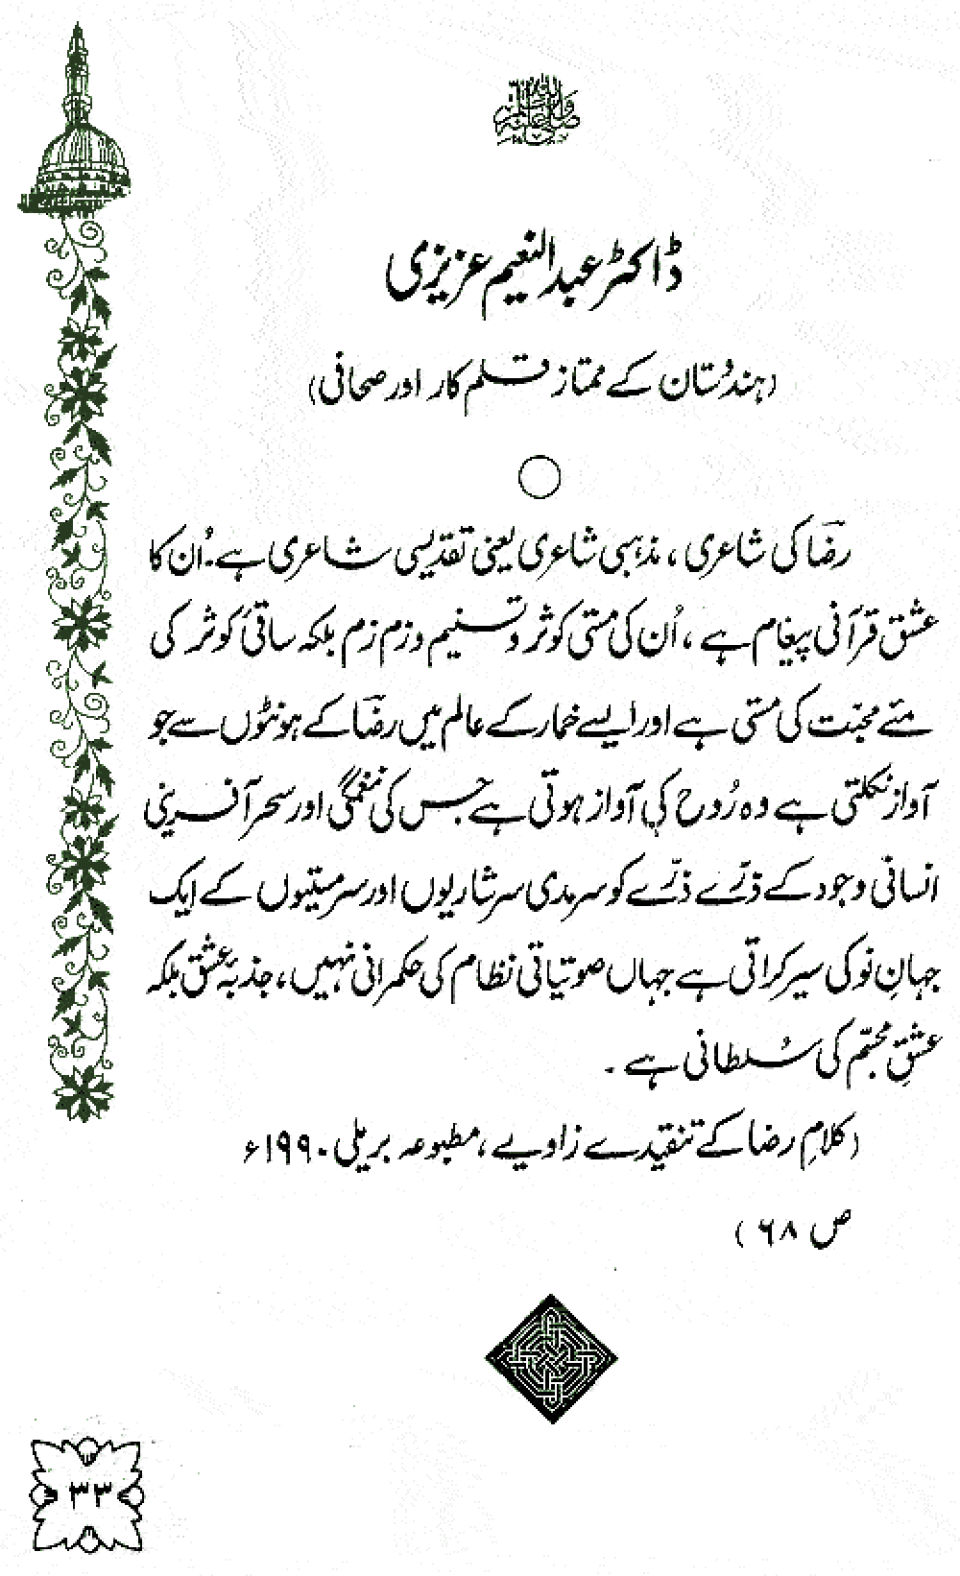 صلی اللہ علیہ وسلم
ڈاکٹر عبدالنعیم عزیزی
(ہندوستان کے ممتاز قلم کار اور صحافی)
رضؔا کی شاعری ، مذہبی شاعری یعنی تقدیسی شاعری ہے۔ اُن کا
عشق قرآنی پیغام ہے ، اُن کی مستی کوثر و تسنیم و زم زم بلکہ ساقیٔ کوثر کی
مئے محبّت کی مستی ہے اور ایسے خمار کے عالم میں رضؔا کے ہونٹوں سے جو
آواز نکلتی ہے وہ رُوح کی آواز ہوتی ہے جس کی نغمگی اور سحر آفرینی
انسانی وجود کے ذرّے ذرّے کو سرمدی سرشاریوں اور سرمستیوں کے ایک
جہانِ نو کی سیر کراتی ہے جہاں صوتیاتی نظام کی حکمرانی نہیں ، جذبۂ عشق بلکہ
عشقِ مجسّم کی سُلطانی ہے ۔
(کلامِ رضا کے تنقیدے زاویے ، مطبوعہ بریلی ۱۹۹۰ء
ص ۶۸ )
۳۳